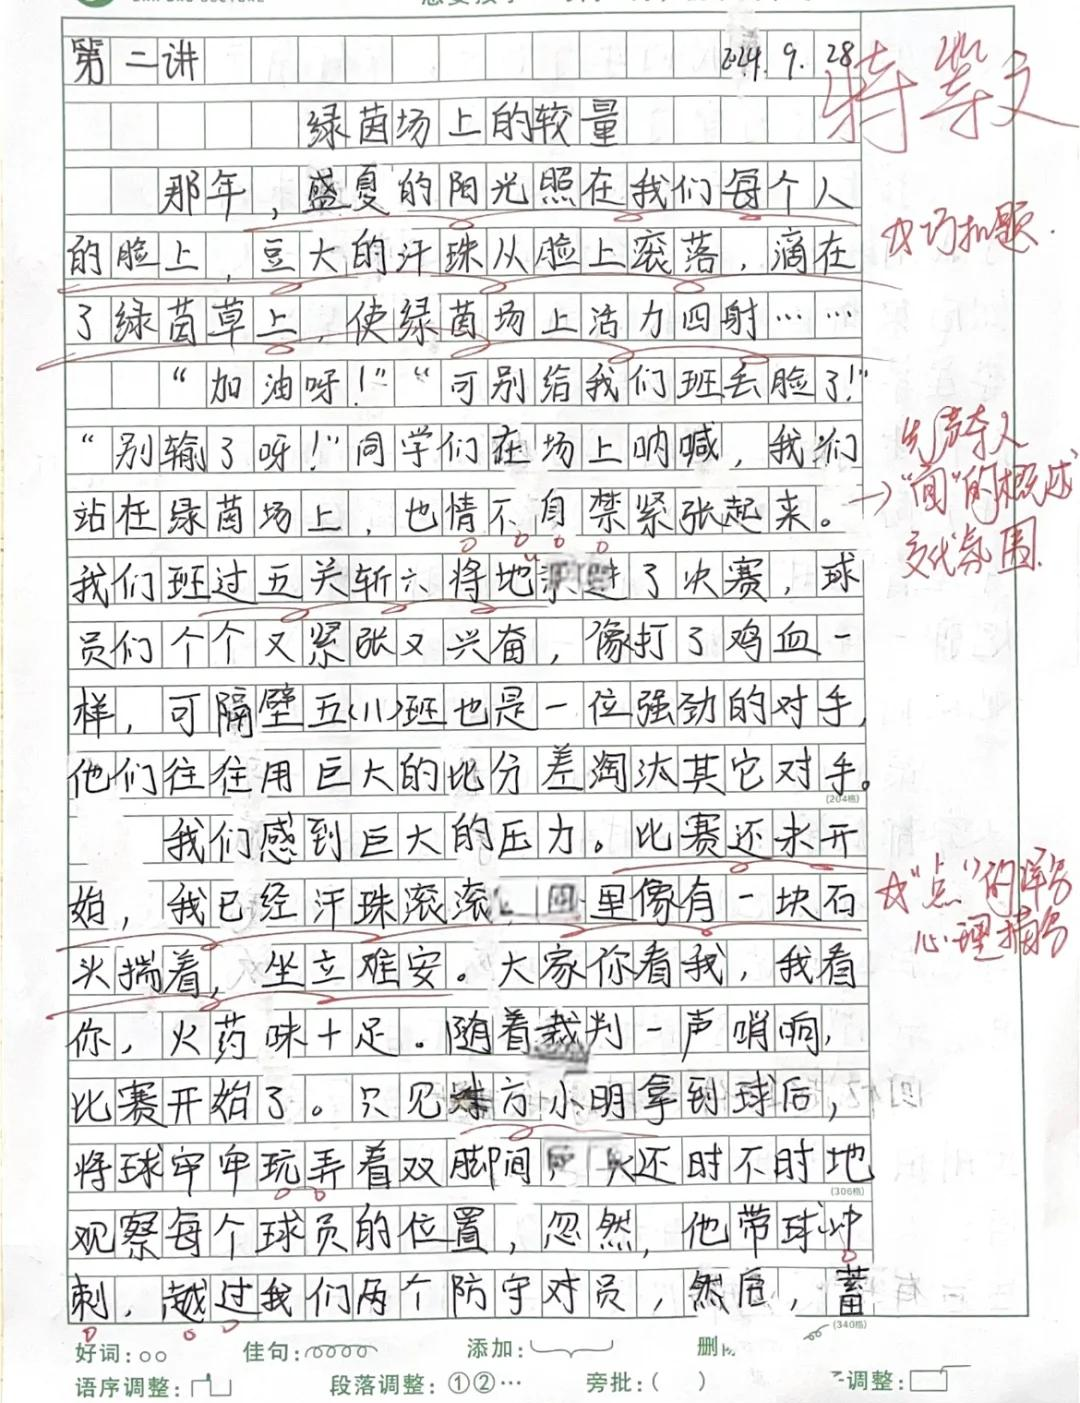 第二讲 2024.9.28
特等文
绿茵场上的较量
那年，盛夏的阳光照在我们每个人
的脸上，豆大的汗珠从脸上滚落，滴在
巧扣题.
了绿茵草上，使绿茵场上活力四射……
“加油呀！”“可别给我们班丢脸了！”
“别输了呀！”同学们在场上呐喊，我们
先声夺人
站在绿茵场上，也情不自禁紧张起来。
→“面”的概述
交代氛围.
我们班过五关斩六将地进了决赛，球
员们个个又紧张又兴奋，像打了鸡血一
样，可隔壁五(11)班也是一位强劲的对手，
他们往往用巨大的比分差淘汰其它对手。
(204格)
我们感到巨大的压力。比赛还未开
始，我已经汗珠滚滚，里像有一块石
“点”的详写
心理描写
头揣着，坐立难安。大家你看我，我看
你，火药味十足。随着裁判一声哨响，
比赛开始了。只见对方小明拿到球后，
将球牢牢玩弄着双脚间，还时不时地
(306格)
观察每个球员的位置，忽然，他带球冲
刺，越过我们两个防守对员，然后，蓄
(340格)
好词：○○ 佳句： 添加： 删
语序调整： 段落调整：①②… 旁批：( ) 调整：